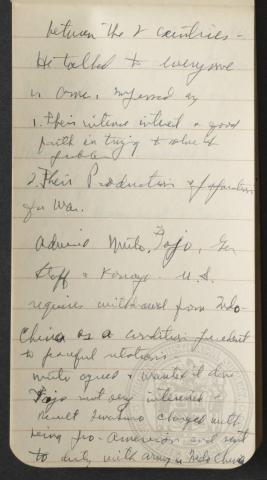 between the 2 countries -
He talked to everyone
in
1. Their intense interest & good
faith in trying to solve
problem
2. Their Production & preparation
for War.
Advised Muto, Tojo, Gen
Staff & U.S.
requires withdrawal from Indo-
China as a condition precedent
to peaceful relations
Muto agreed & wanted it done
Tojo not very interested &
result Iwakuro charged with
being pro-American and sent
to duty with army in Indo China